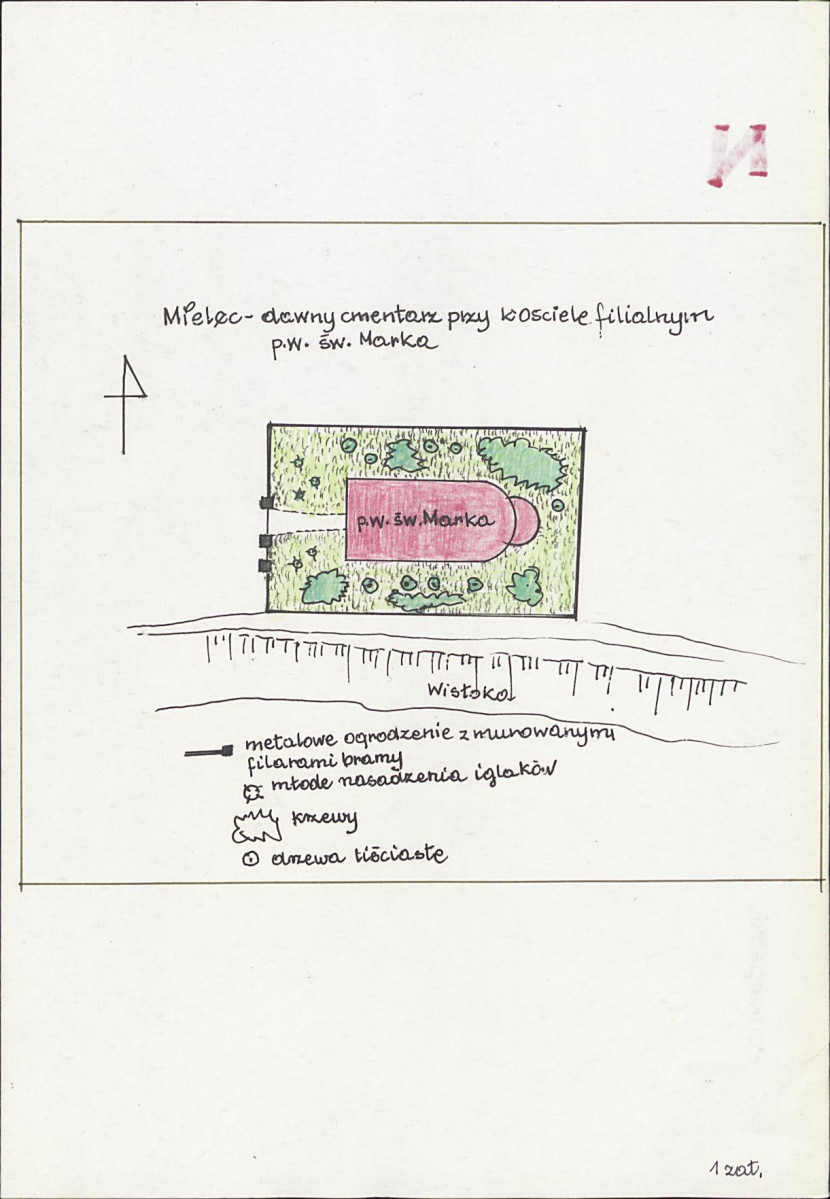 И
Mielec - dawny cmentarz przy kościele filialnym
p.w. św. Marka
p.w. św. Marka
Wisłoka
metalowe ogrodzenie z murowanymi
filarami bramy
młode nasadzenia iglaków
krzewy
drzewa liściaste
1 zał.